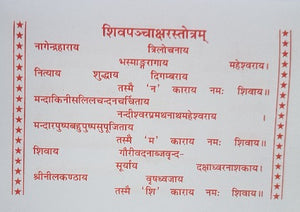 शिवपञ्चाक्षरस्तोत्रम्
नागेन्द्रहाराय त्रिलोचनाय
भस्माङ्गरागाय महेश्वराय।
नित्याय शुद्धाय दिगम्बराय
तस्मै 'न' काराय नमः शिवाय॥
मन्दाकिनीसलिलचन्दनचर्चिताय
नन्दीश्वरप्रमथनाथमहेश्वराय ।
मन्दारपुष्पबहुपुष्पसुपूजिताय
तस्मै 'म' काराय नमः शिवाय॥
शिवाय गौरीवदनाब्जवृन्द-
सूर्याय दक्षाध्वरनाशकाय।
श्रीनीलकण्ठाय वृषध्वजाय
तस्मै 'शि' काराय नमः शिवाय॥